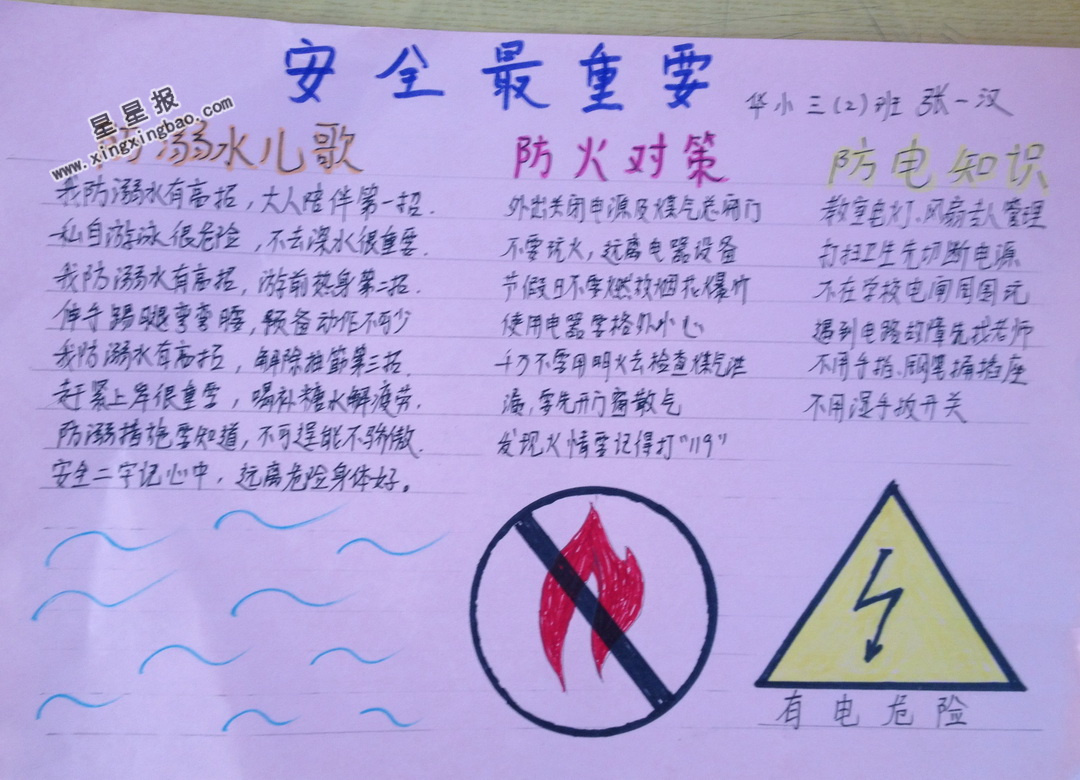 安全最重要
华小三(2)班 张一汉
星星报
www.xingxingbao.com
防溺水儿歌
我防溺水有高招,大人陪伴第一招.
私自游泳很危险,不去深水很重要.
我防溺水有高招,游前热身第二招.
伸手踢腿弯弯腰,预备动作不可少
我防溺水有高招,解除抽筋第三招.
赶紧上岸很重要,喝补糖水解疲劳.
防溺措施要知道,不可逞能不骄傲.
安全二字记心中,远离危险身体好。
防火对策
外出关闭电源及煤气总阀门
不要玩火,远离电器设备
节假日不要燃放烟花爆竹
使用电器要格外小心
千万不要用明火去检查煤气泄
漏,要先开门窗散气
发现火情要记得打"119"
防电知识
教室电灯、风扇专人管理
打扫卫生先切断电源
不在学校电闸周围玩
遇到电路故障先找老师
不用手指、钢笔捅插座
不用湿手拨开关
有电危险